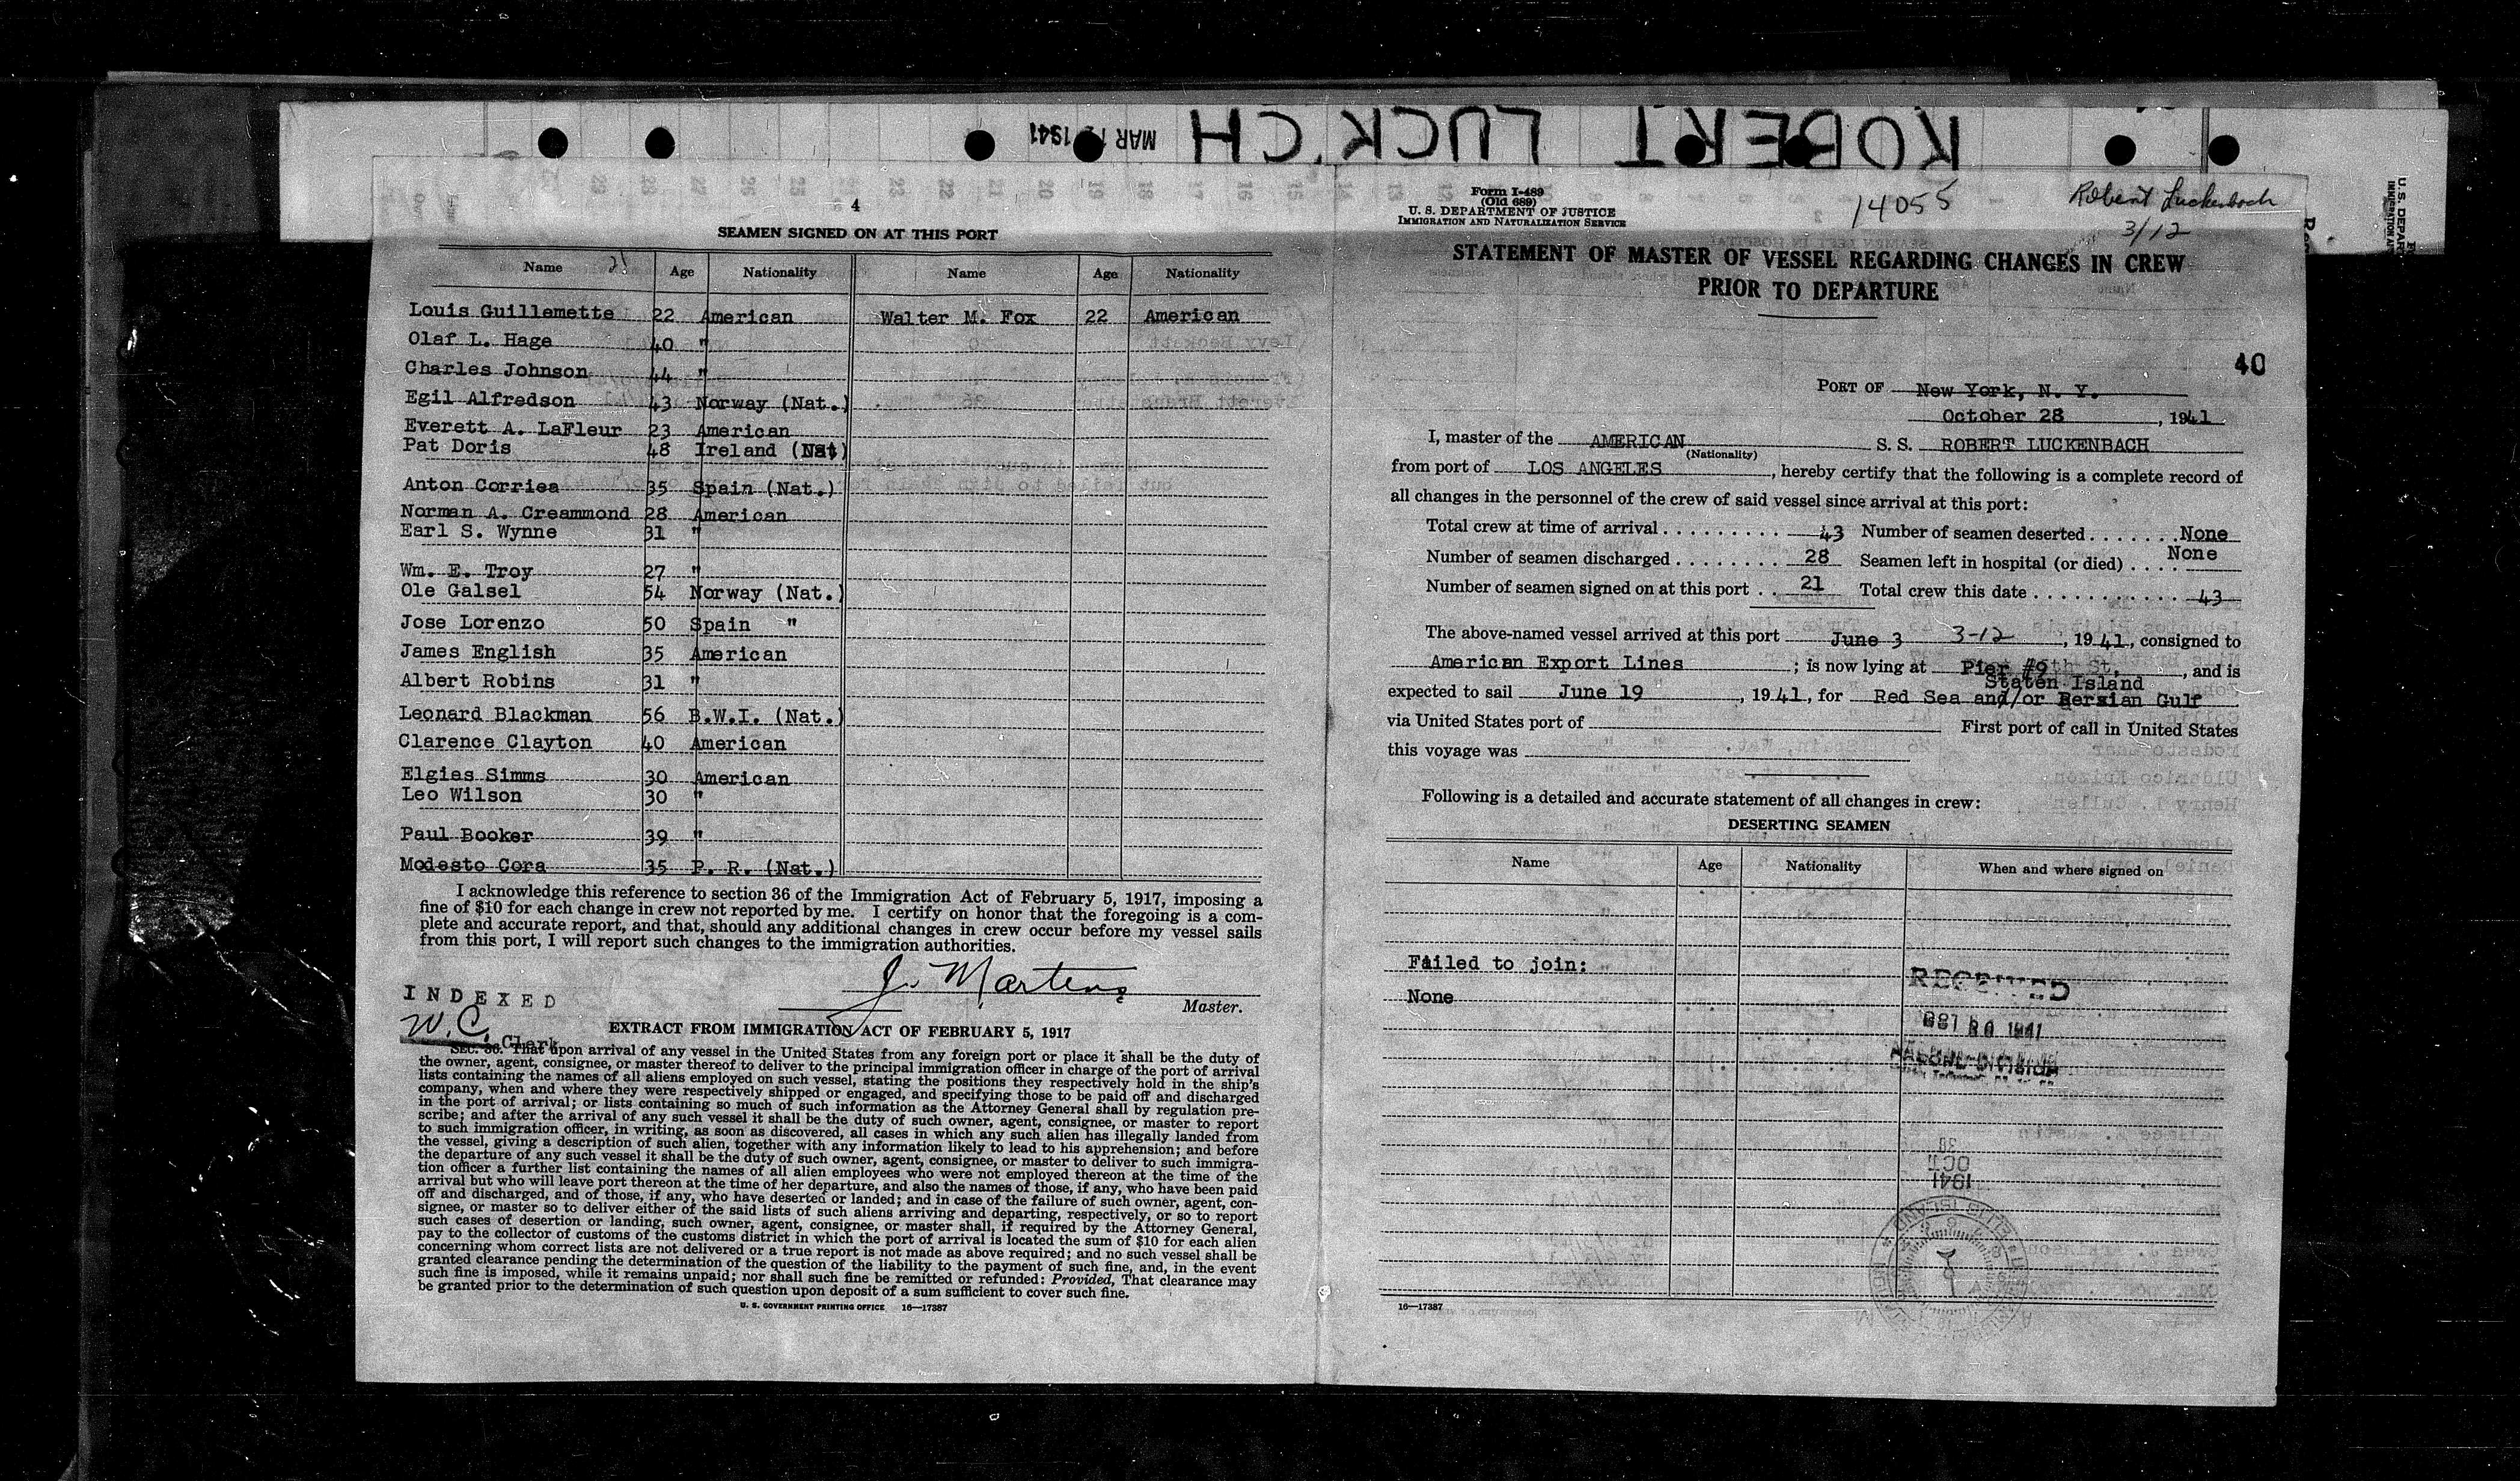 ROBERT LUCK'CH
MAR 12 1941
4
SEAMEN SIGNED ON AT THIS PORT
21
Name Age Nationality Name Age Nationality
Louis Guillemette 22 American Walter M. Fox 22 American
Olaf L. Hage 40 "
Charles Johnson 44 "
Egil Alfredson 43 Norway (Nat.)
Everett A. LaFleur 23 American
Pat Doris 48 Ireland (Nat)
Anton Corriea 35 Spain (Nat.)
Norman A. Creammond 28 American
Earl S. Wynne 31 "
Wm. E. Troy 27 "
Ole Galsel 54 Norway (Nat.)
Jose Lorenzo 50 Spain "
James English 35 American
Albert Robins 31 "
Leonard Blackman 56 B.W.I. (Nat.)
Clarence Clayton 40 American
Elgies Simms 30 American
Leo Wilson 30 "
Paul Booker 39 "
Modesto Cora 35 P. R. (Nat.)
I acknowledge this reference to section 36 of the Immigration Act of February 5, 1917, imposing a
fine of $10 for each change in crew not reported by me. I certify on honor that the foregoing is a com-
plete and accurate report, and that, should any additional changes in crew occur before my vessel sails
from this port, I will report such changes to the immigration authorities.
J. Martens
Master.
INDEXED
W.C.
Clerk
EXTRACT FROM IMMIGRATION ACT OF FEBRUARY 5, 1917
SEC. 36. That upon arrival of any vessel in the United States from any foreign port or place it shall be the duty of
the owner, agent, consignee, or master thereof to deliver to the principal immigration officer in charge of the port of arrival
lists containing the names of all aliens employed on such vessel, stating the positions they respectively hold in the ship's
company, when and where they were respectively shipped or engaged, and specifying those to be paid off and discharged
in the port of arrival; or lists containing so much of such information as the Attorney General shall by regulation pre-
scribe; and after the arrival of any such vessel it shall be the duty of such owner, agent, consignee, or master to report
to such immigration officer, in writing, as soon as discovered, all cases in which any such alien has illegally landed from
the vessel, giving a description of such alien, together with any information likely to lead to his apprehension; and before
the departure of any such vessel it shall be the duty of such owner, agent, consignee, or master to deliver to such immigra-
tion officer a further list containing the names of all alien employees who were not employed thereon at the time of the
arrival but who will leave port thereon at the time of her departure, and also the names of those, if any, who have been paid
off and discharged, and of those, if any, who have deserted or landed; and in case of the failure of such owner, agent, con-
signee, or master so to deliver either of the said lists of such aliens arriving and departing, respectively, or so to report
such cases of desertion or landing, such owner, agent, consignee, or master shall, if required by the Attorney General,
pay to the collector of customs of the customs district in which the port of arrival is located the sum of $10 for each alien
concerning whom correct lists are not delivered or a true report is not made as above required; and no such vessel shall be
granted clearance pending the determination of the question of the liability to the payment of such fine, and, in the event
such fine is imposed, while it remains unpaid; nor shall such fine be remitted or refunded: Provided, That clearance may
be granted prior to the determination of such question upon deposit of a sum sufficient to cover such fine.
U. S. GOVERNMENT PRINTING OFFICE 16—17387
Form I-489
(Old 689)
U. S. DEPARTMENT OF JUSTICE
IMMIGRATION AND NATURALIZATION SERVICE
14055
Robert Luckenbach
3/12
STATEMENT OF MASTER OF VESSEL REGARDING CHANGES IN CREW
PRIOR TO DEPARTURE
40
PORT OF New York, N. Y.
October 28, 1941
I, master of the AMERICAN S. S. ROBERT LUCKENBACH
(Nationality)
from port of LOS ANGELES, hereby certify that the following is a complete record of
all changes in the personnel of the crew of said vessel since arrival at this port:
Total crew at time of arrival . . . . . . . . . 43 Number of seamen deserted . . . . . . . None
Number of seamen discharged . . . . . . . . 28 Seamen left in hospital (or died) . . . . None
Number of seamen signed on at this port . . 21 Total crew this date . . . . . . . . . . . . 43
The above-named vessel arrived at this port June 3 3-12, 1941, consigned to
American Export Lines; is now lying at Pier #9th St., and is
Staten Island
expected to sail June 19, 1941, for Red Sea and/or Persian Gulf
via United States port of First port of call in United States
this voyage was
Following is a detailed and accurate statement of all changes in crew:
DESERTING SEAMEN
Name Age Nationality When and where signed on
Failed to join:
None
RECEIVED
OCT 1941
RECORD DIVISION
30
OCT
1941
ELLIS ISLAND
16—17387